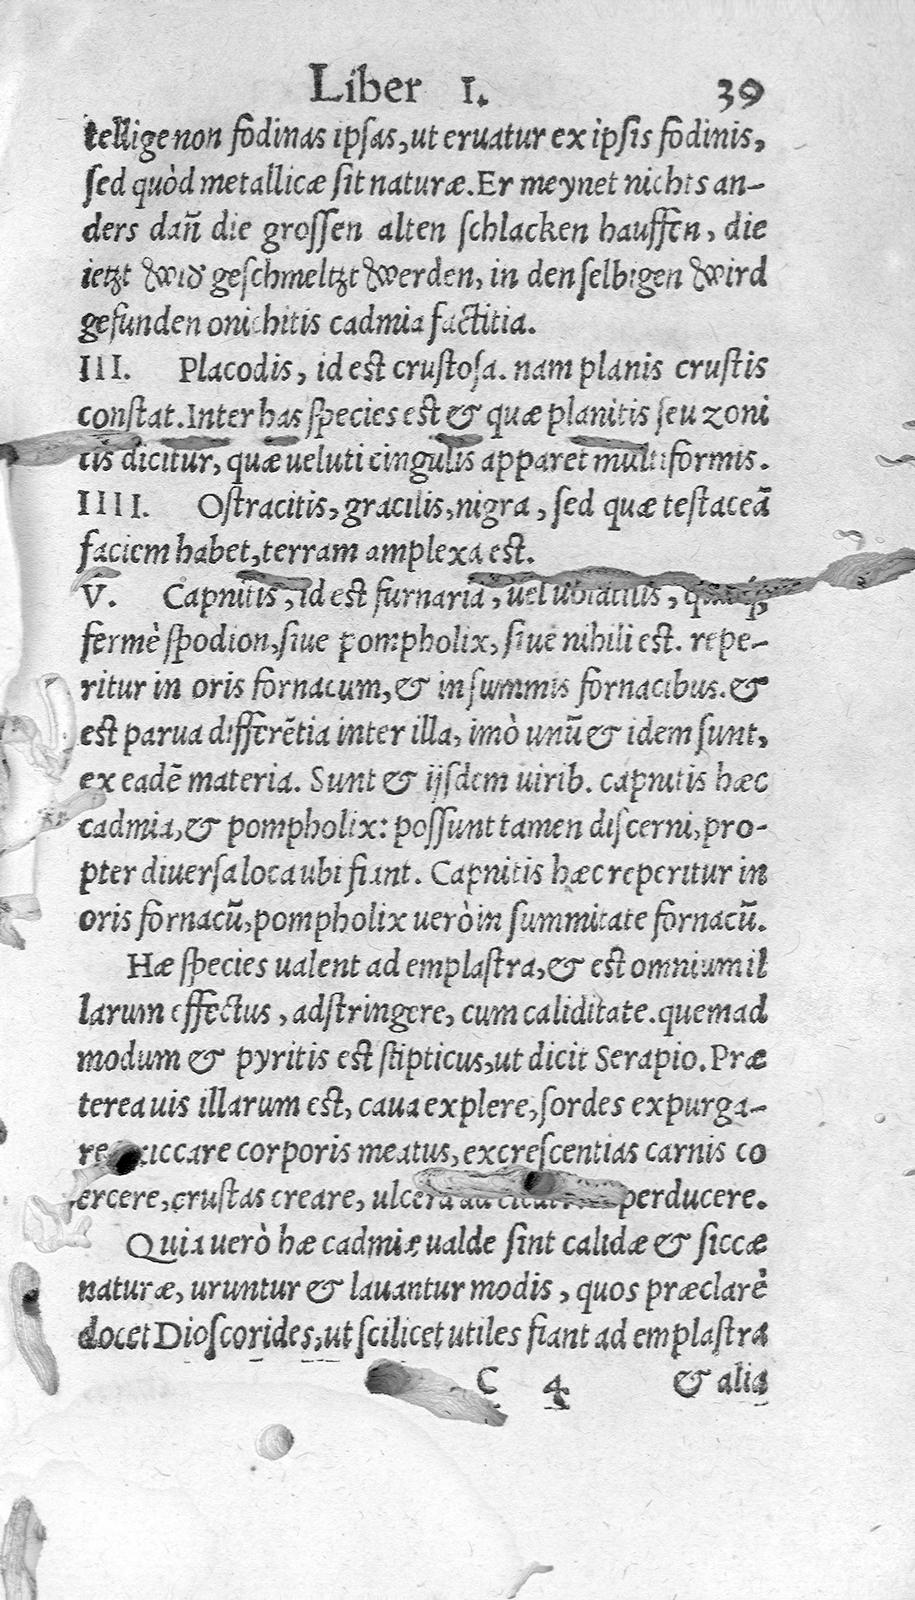 Liber I. 39
tellige non fodinas ipſas, ut eruatur ex ipſis fodinis,
ſed quòd metallicæ ſit naturæ. Er meynet nichts an-
ders dañ die groſſen alten ſchlacken hauffen, die
ietzt wid geſchmeltzt werden, in den ſelbigen wird
gefunden onichitis cadmia factitia.
III. Placodis, id eſt cruſtoſa. nam planis cruſtis
conſtat. Inter has ſpecies eſt & quæ planitis ſeu zoni
tis dicitur, quæ ueluti cingulis apparet multiformis.
IIII. Oſtracitis, gracilis, nigra, ſed quæ teſtaceā
faciem habet, terram amplexa eſt.
V. Capnitis, id eſt furnaria, uel
fermè ſpodion, ſiue pompholix, ſiue nihili eſt. repe-
ritur in oris fornacum, & in ſummis fornacibus. &
eſt parua differētia inter illa, imò unū & idem ſunt,
ex eadē materia. Sunt & ijſdem uirib. capnitis hæc
cadmia, & pompholix: poſſunt tamen diſcerni, pro-
pter diuerſa loca ubi fiant. Capnitis hæc reperitur in
oris fornacū, pompholix uerò in ſummitate fornacū.
Hæ ſpecies ualent ad emplaſtra, & eſt omnium il
larum effectus, adſtringere, cum caliditate. quemad
modum & pyritis eſt ſtipticus, ut dicit Serapio. Præ
terea uis illarum eſt, caua explere, ſordes expurga-
re, corporis meatus, excreſcentias carnis co
ercere, cruſtas creare, ulcera perducere.
Quia uerò hæ cadmiæ ualde ſint calidæ & ſiccæ
naturæ, uruntur & lauantur modis, quos præclarè
docet Dioſcorides, ut ſcilicet utiles fiant ad emplaſtra
C 4 & alia